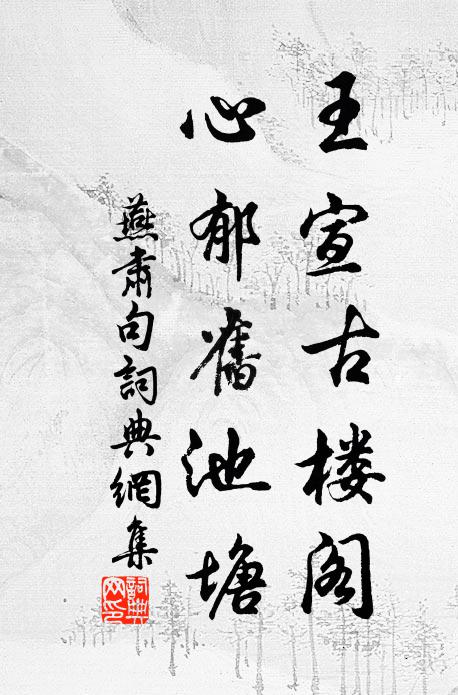 王宣古楼阁
心郁舊池塘
燕肅句詞典網集